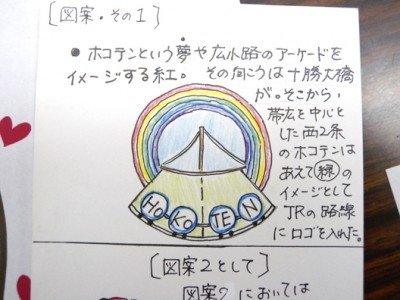 [図案・その1]
●ホコテンという夢や広小路のアーケードを
イメージする虹。その向こうは十勝大橋
が。そこから、
帯広を中心と
した西2条
のホコテンは
あえて緑の
イメージとして
JRの路線
にロゴを入れた。
HoKoTEN
[図案2として]
図案2においては